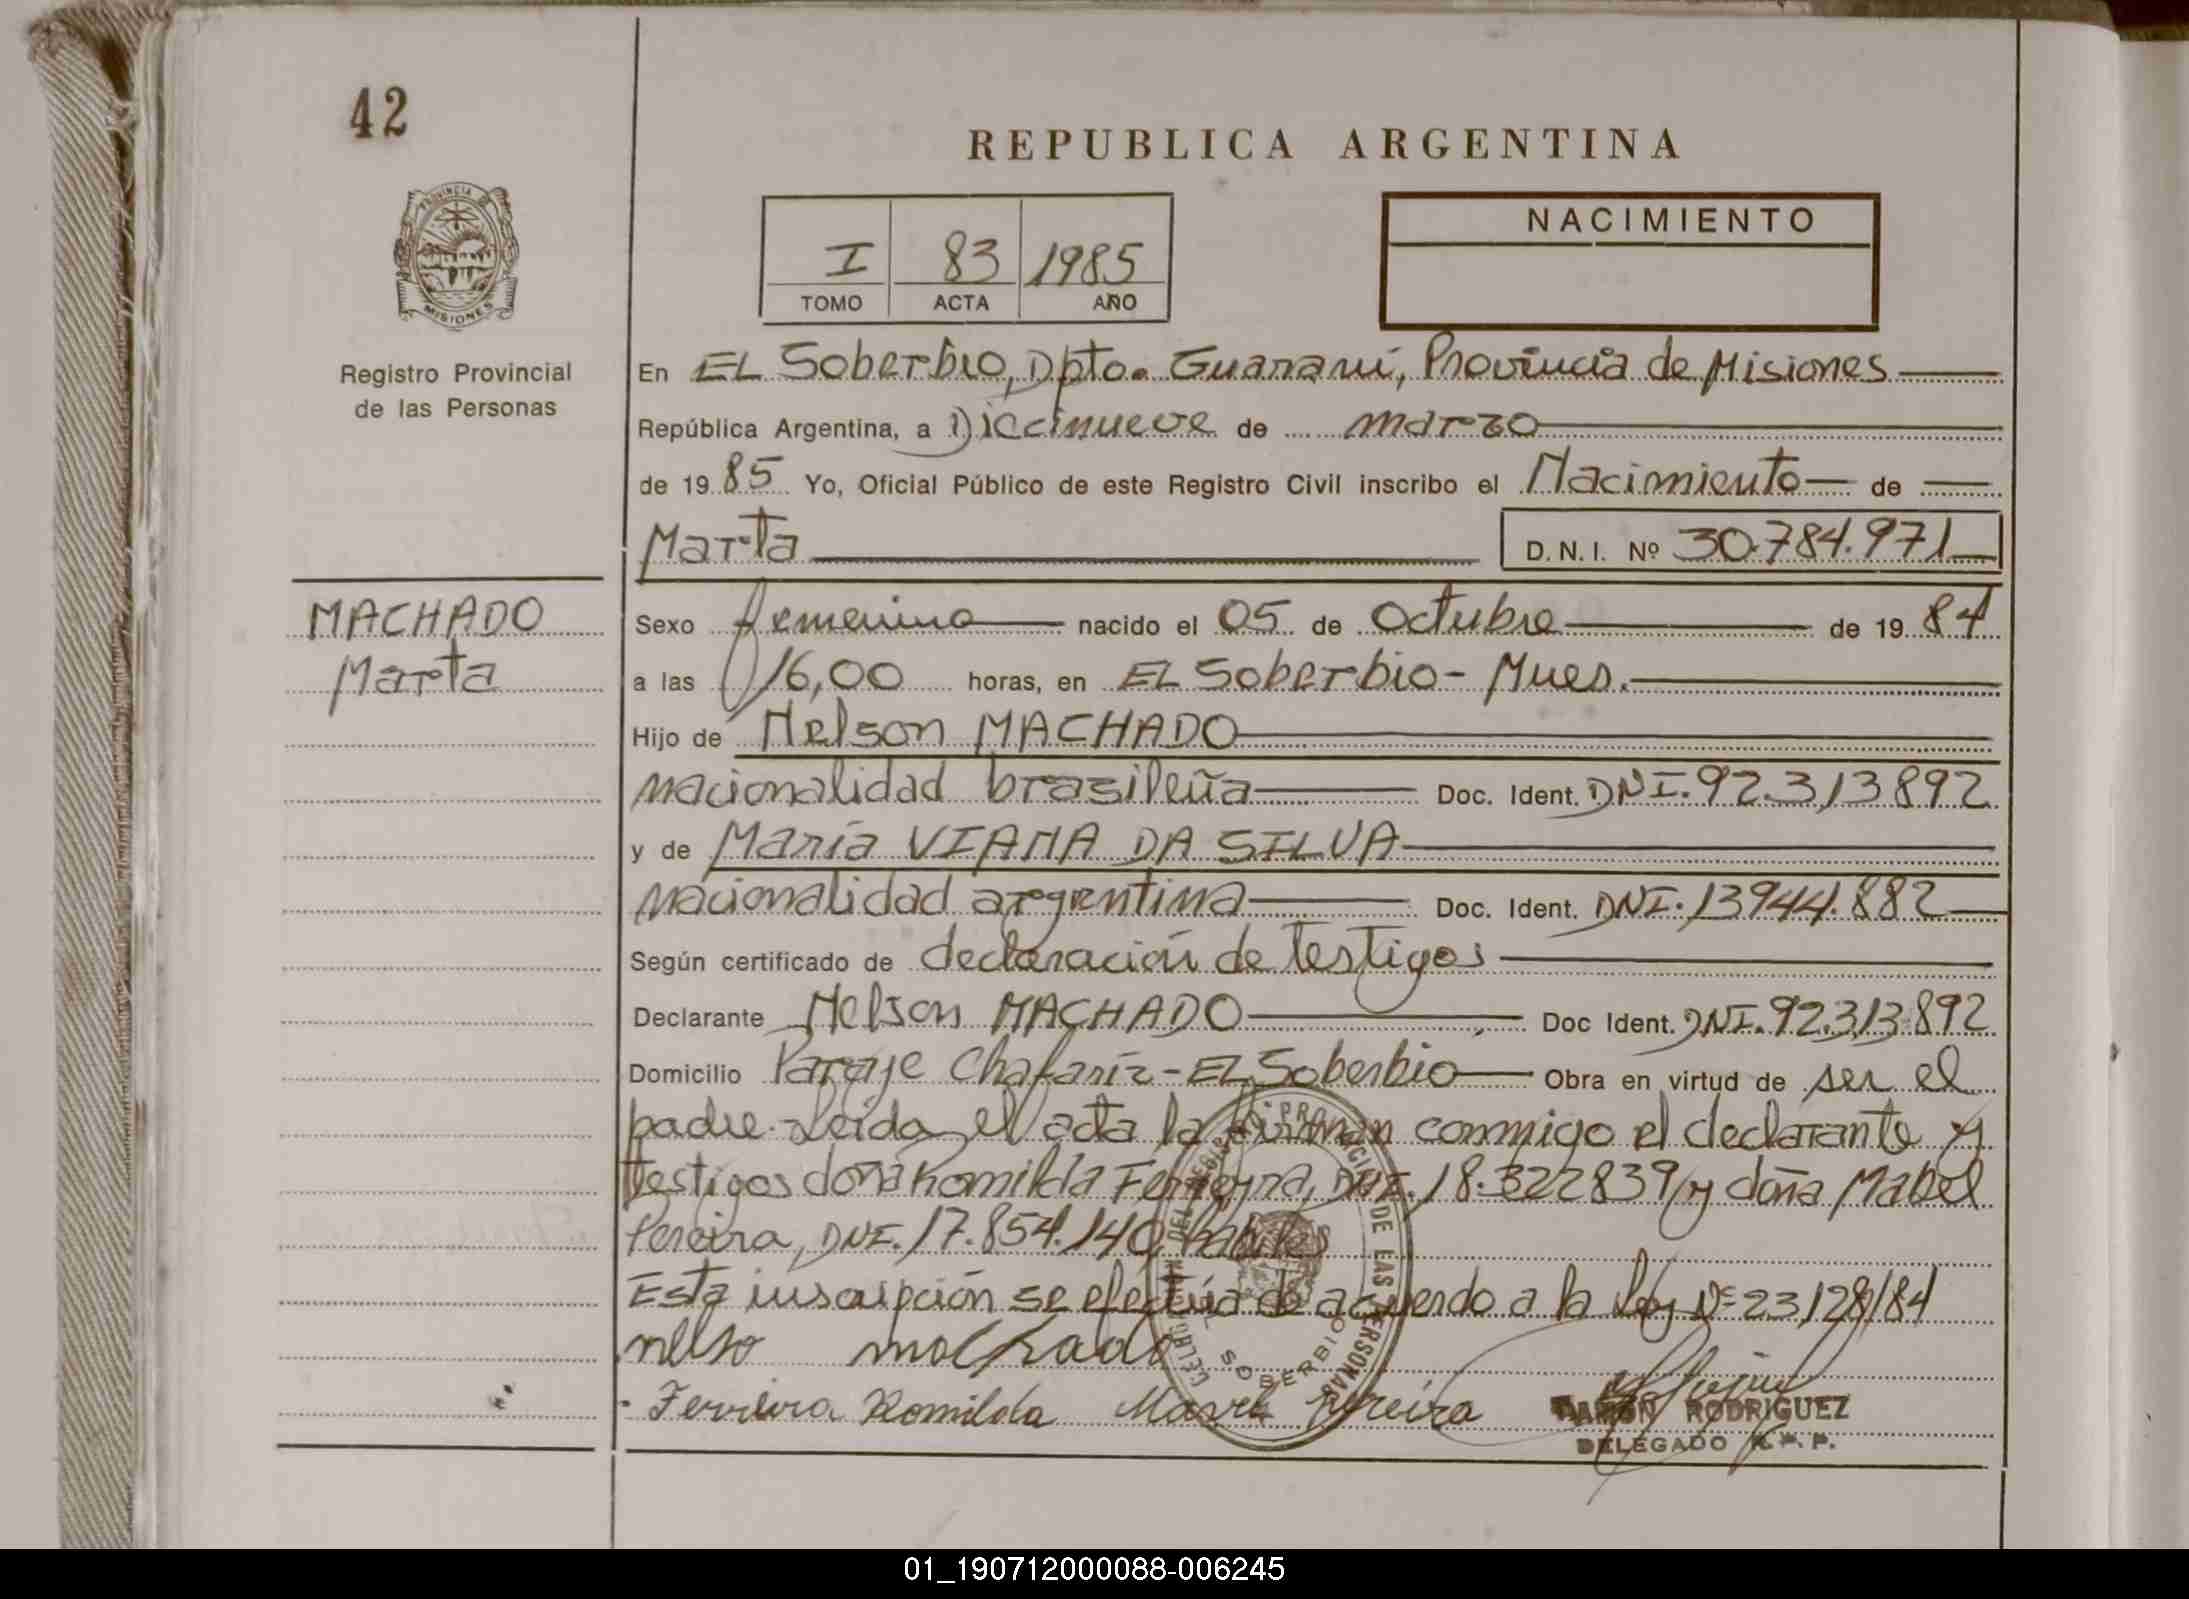 42
PROVINCIA DE
MISIONES
Registro Provincial
de las Personas
MACHADO
Marta
REPUBLICA ARGENTINA
I 83 1985
TOMO ACTA AÑO
NACIMIENTO
En EL Soberbio, Dpto. Guaraní, Provincia de Misiones
República Argentina, a Diecinueve de marzo
de 1985 Yo, Oficial Público de este Registro Civil inscribo el Nacimiento de
Marta D.N.I. Nº 30.784.971
Sexo femenino nacido el 05 de Octubre de 1984
a las 16,00 horas, en EL Soberbio - Mnes.
Hijo de Nelson MACHADO
nacionalidad brasileña Doc. Ident. DNI. 92.313892
y de María VIANA DA SILVA
nacionalidad argentina Doc. Ident. DNI. 13944.882
Según certificado de declaración de testigos
Declarante Nelson MACHADO Doc Ident. DNI. 92.313.892
Domicilio Paraje Chafariz - EL Soberbio Obra en virtud de ser el
padre. Leida el acta la firman conmigo el declarante y
testigos doña Romilda Ferreyra, DNI. 18.322839 y doña Mabel
Pereira, DNI. 17.854.140, hábiles
Esta inscripción se efectúa de acuerdo a la Ley Nº 23128/84
nelso machado
Ferreira Romilda Mavel Pereira
RAMON RODRIGUEZ
DELEGADO R. P. P.
DEL REGISTRO PROVINCIAL DE LAS PERSONAS
EL SOBERBIO
01_190712000088-006245